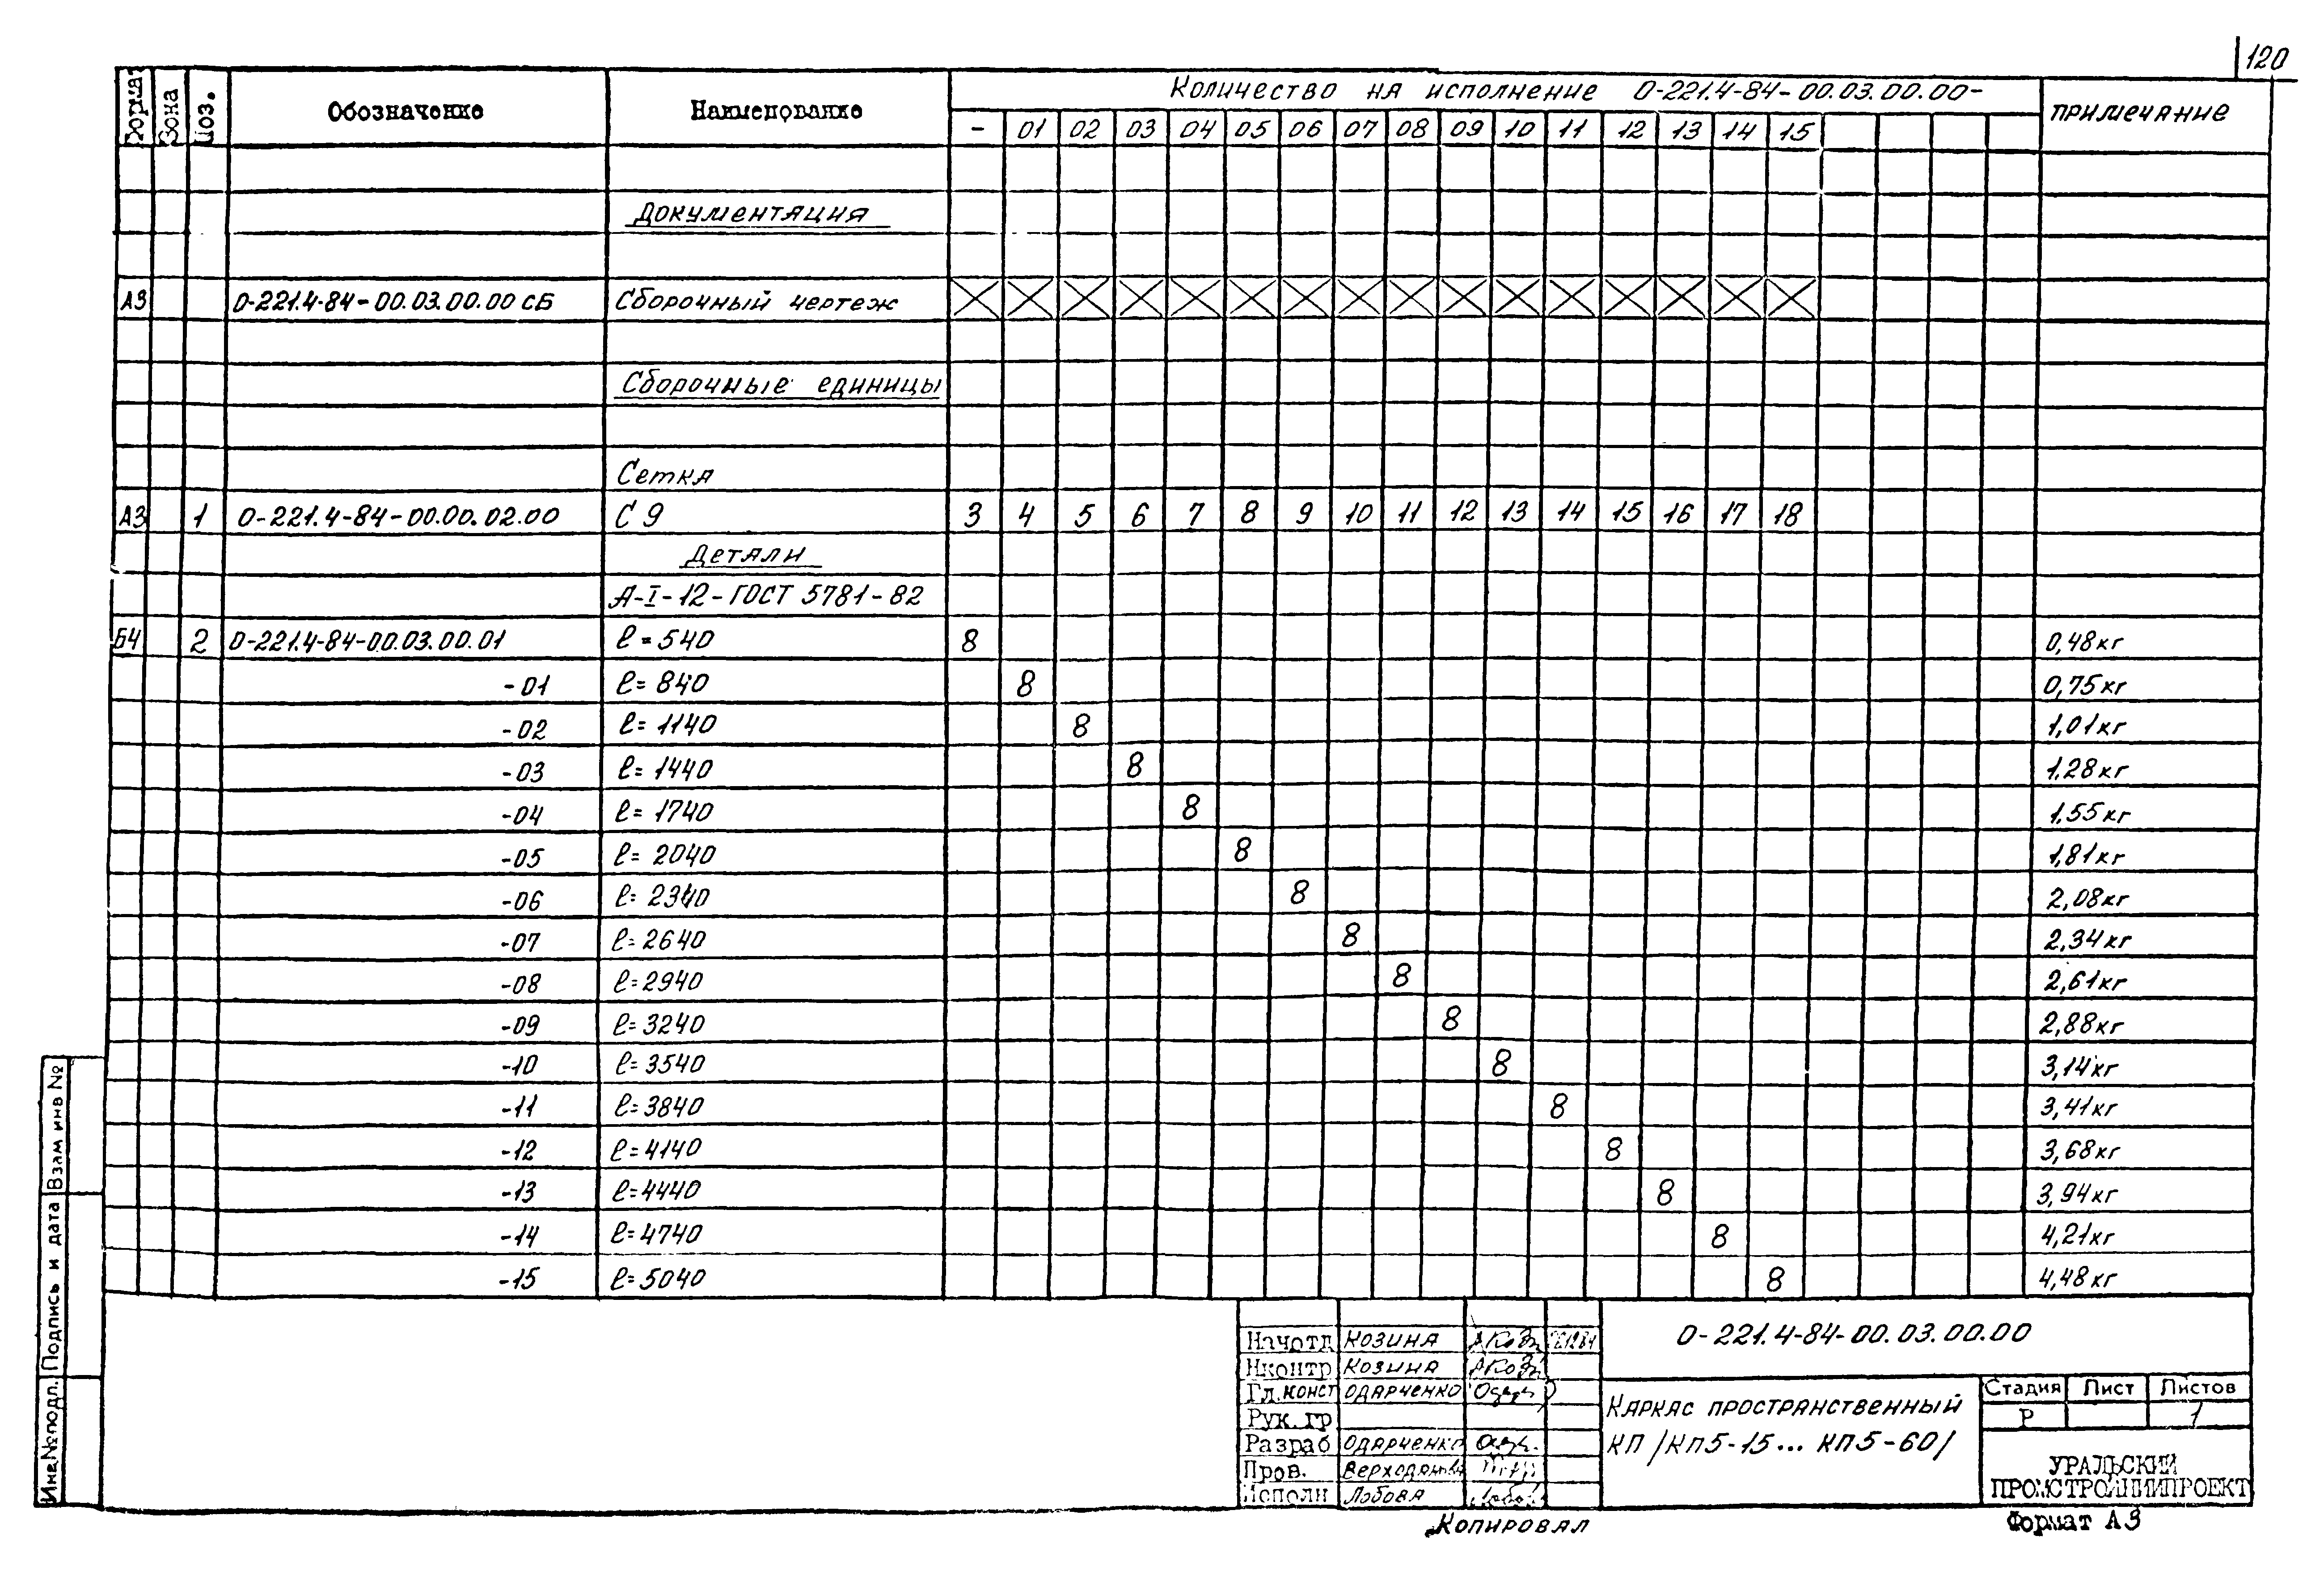 120
Формат Зона Поз. Обозначение Наименование Количество на исполнение 0-221.4-84-00.03.00.00- Примечание
- 01 02 03 04 05 06 07 08 09 10 11 12 13 14 15
Документация
А3 0-221.4-84-00.03.00.00 СБ Сборочный чертеж
Сборочные единицы
Сетка
А3 1 0-221.4-84-00.00.02.00 С9 3 4 5 6 7 8 9 10 11 12 13 14 15 16 17 18
Детали
А-I-12-ГОСТ 5781-82
Б4 2 0-221.4-84-00.03.00.01 ℓ=540 8 0,48кг
-01 ℓ=840 8 0,75кг
-02 ℓ=1140 8 1,01кг
-03 ℓ=1440 8 1,28кг
-04 ℓ=1740 8 1,55кг
-05 ℓ=2040 8 1,81кг
-06 ℓ=2340 8 2,08кг
-07 ℓ=2640 8 2,34кг
-08 ℓ=2940 8 2,61кг
-09 ℓ=3240 8 2,88кг
-10 ℓ=3540 8 3,14кг
-11 ℓ=3840 8 3,41кг
-12 ℓ=4140 8 3,68кг
-13 ℓ=4440 8 3,94кг
-14 ℓ=4740 8 4,21кг
-15 ℓ=5040 8 4,48кг
Инв.№подл. Подпись и дата Взам инв №
Начотд Козина
Нконтр Козина
Гл.конст Одарченко
Рук.гр
Разраб Одарченко
Пров.
Исполн Лобова
0-221.4-84-00.03.00.00
Каркас пространственный
КП /КП5-15... КП5-60/
Стадия Лист Листов
Р 1
УРАЛЬСКИЙ
ПРОМСТРОЙНИИПРОЕКТ
Копировал
Формат А3